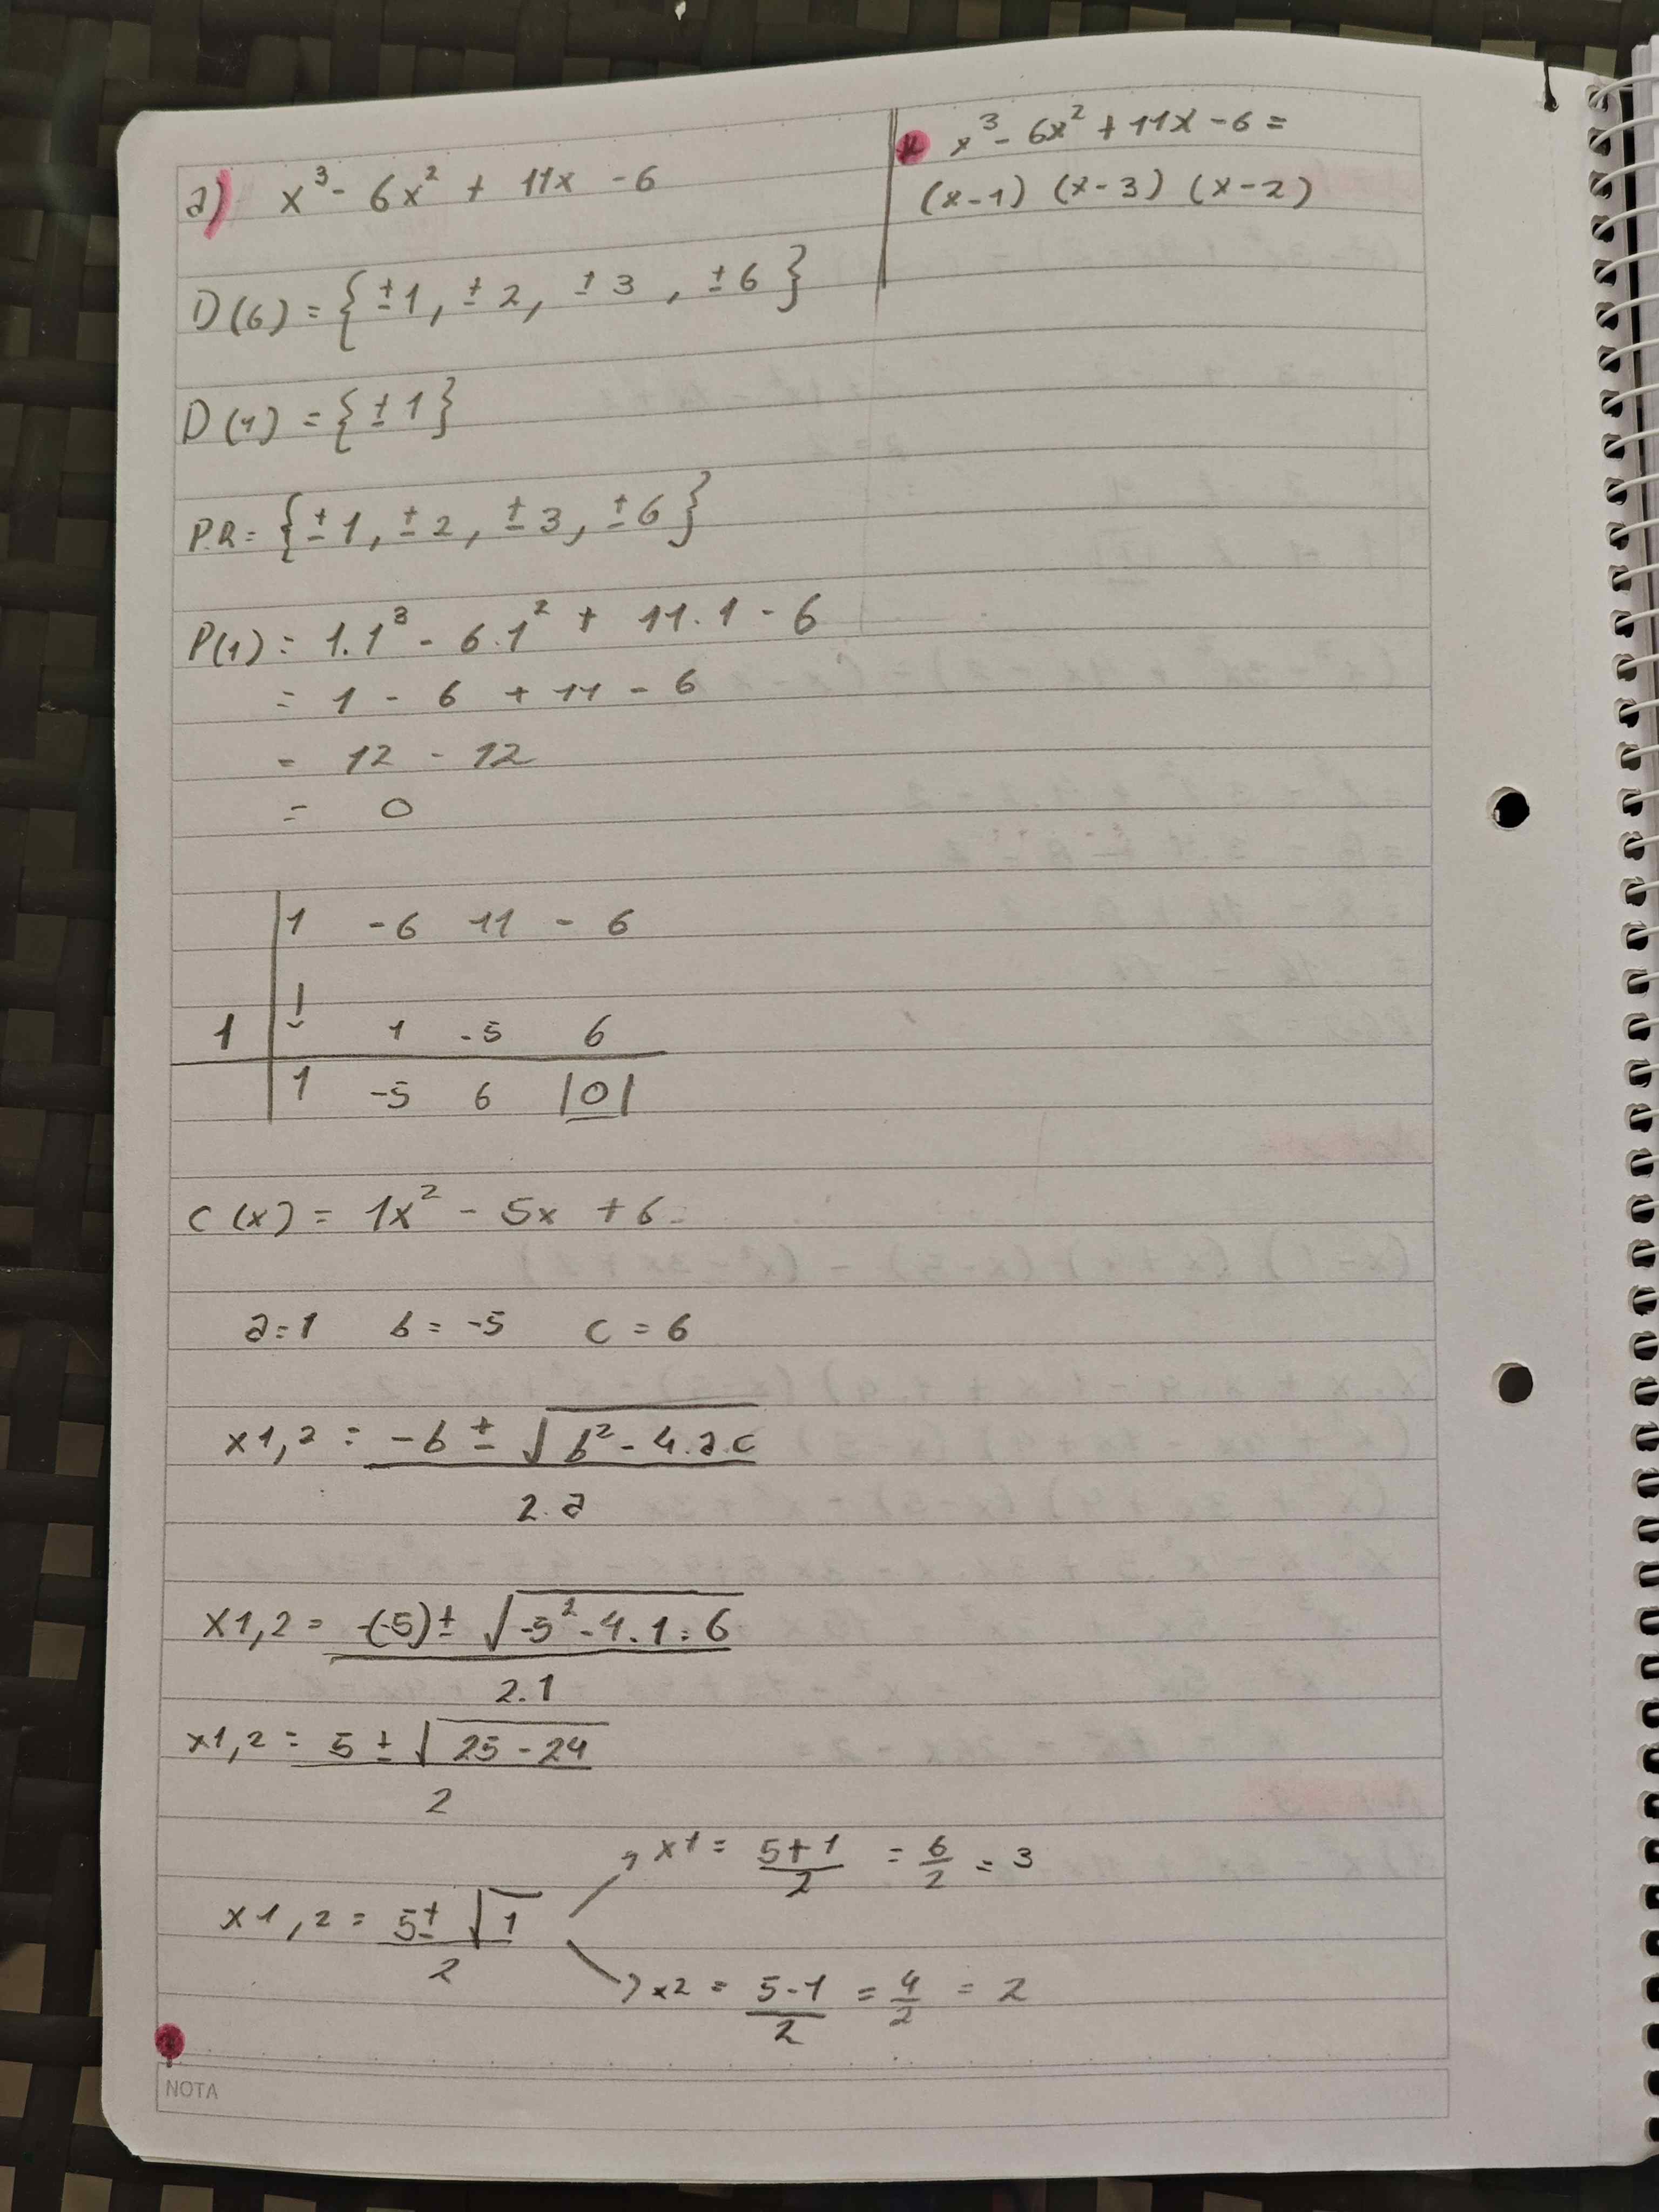 a) x³ - 6x² + 11x - 6
D(6) = {±1, ±2, ±3, ±6}
D(1) = {±1}
P.R = {±1, ±2, ±3, ±6}
P(1) = 1.1³ - 6.1² + 11.1 - 6
= 1 - 6 + 11 - 6
= 12 - 12
= 0
1 -6 11 - 6
1 1 -5 6
1 -5 6 |0|
C(x) = 1x² - 5x + 6
a=1 b= -5 c = 6
x1,2 = -b ± √b² - 4.a.c
2.a
x1,2 = -(-5) ± √-5² - 4.1.6
2.1
x1,2 = 5 ± √25 - 24
2
x1 = 5+1 = 6 = 3
2 2
x1,2 = 5± √1
2
x2 = 5-1 = 4 = 2
2 2
x³ - 6x² + 11x - 6 =
(x-1) (x-3) (x-2)
NOTA